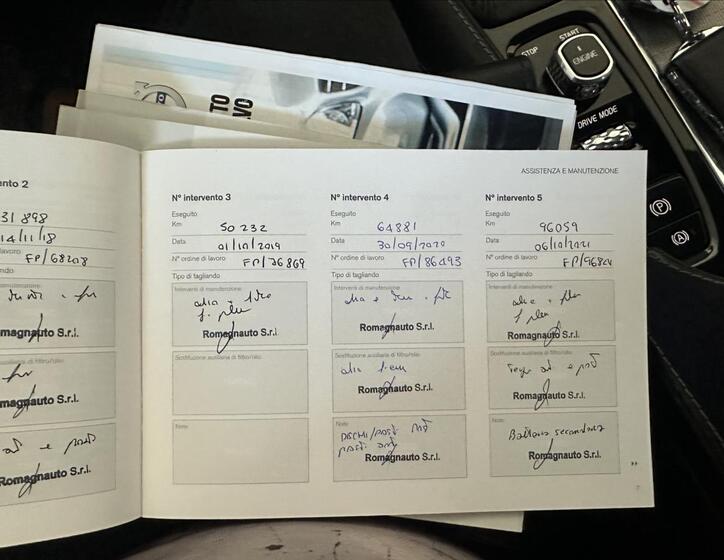 STOP
START
ENGINE
DRIVE MODE
TO
VO
(P)
(A)
ASSISTENZA E MANUTENZIONE
ento 2
31 898
14/11/18
avoro FP/68208
ando
Romagnauto S.r.l.
magnauto S.r.l.
e post
gnauto S.r.l.
N° intervento 3
Eseguito
Km 50 232
Data 01/10/2019
N° ordine di lavoro FP/76869
Tipo di tagliando
Interventi di manutenzione
Romagnauto S.r.l.
Sostituzione ausiliaria di filtro/olio:
Note
N° intervento 4
Eseguito
Km 64881
Data 30/09/2020
N° ordine di lavoro FP/86493
Tipo di tagliando
Interventi di manutenzione
Romagnauto S.r.l.
Sostituzione ausiliaria di filtro/olio:
Romagnauto S.r.l.
Note
DISCHI/POST
Romagnauto S.r.l.
N° intervento 5
Eseguito
Km 96059
Data 06/10/2021
N° ordine di lavoro FP/96824
Tipo di tagliando
Interventi di manutenzione
Romagnauto S.r.l.
Sostituzione ausiliaria di filtro/olio:
Romagnauto S.r.l.
Note:
Batteria secondaria
Romagnauto S.r.l.
»
7